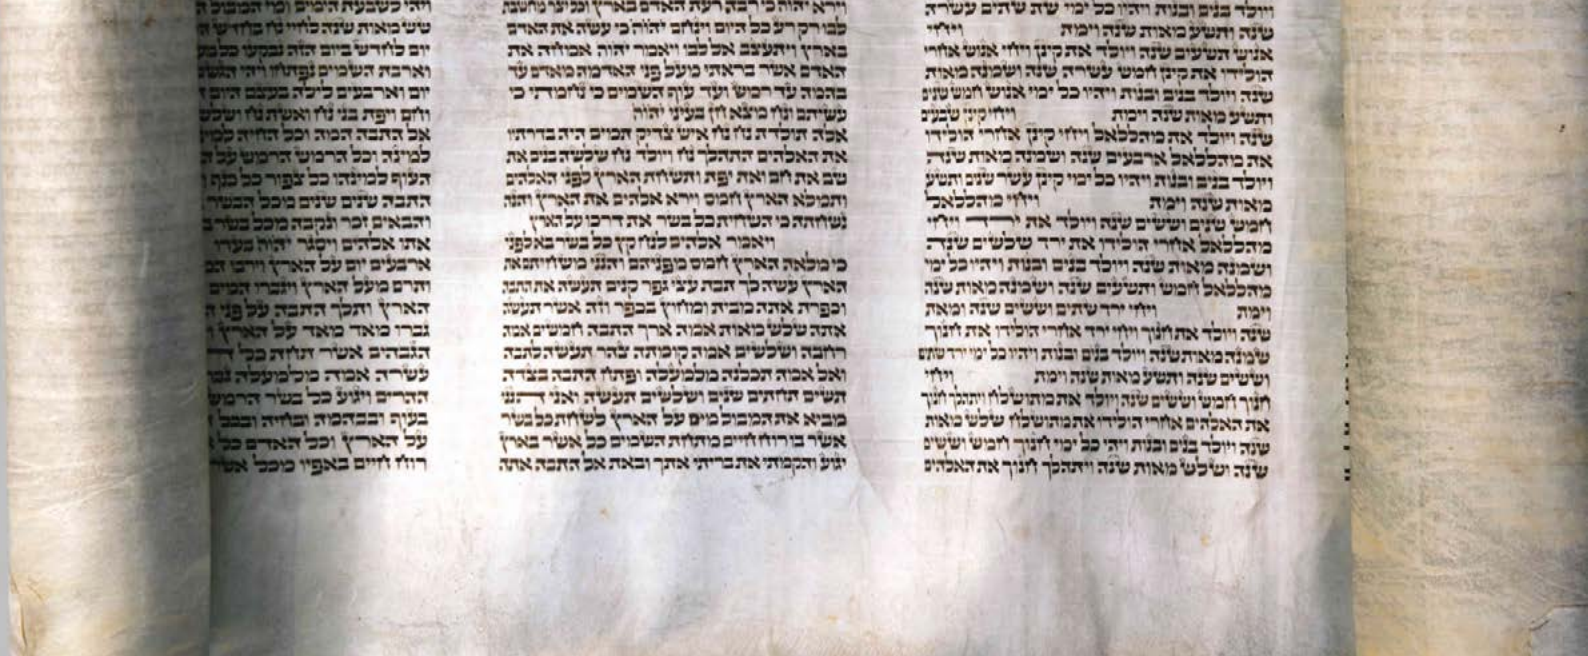 ויולד בנים ובנות ויהיו כל ימי שת שתים עשרה
שנה ותשע מאות שנה וימת ויחי
אנוש תשעים שנה ויולד את קינן ויחי אנוש אחרי
הולידו את קינן חמש עשרה שנה ושמונה מאות
שנה ויולד בנים ובנות ויהיו כל ימי אנוש חמש שנים
ותשע מאות שנה וימת ויחי קינן שבעים
שנה ויולד את מהללאל ויחי קינן אחרי הולידו
את מהללאל ארבעים שנה ושמונה מאות שנה
ויולד בנים ובנות ויהיו כל ימי קינן עשר שנים ותשע
מאות שנה וימת ויחי מהללאל
חמש שנים וששים שנה ויולד את ירד ויחי
מהללאל אחרי הולידו את ירד שלשים שנה
ושמונה מאות שנה ויולד בנים ובנות ויהיו כל ימי
מהללאל חמש ותשעים שנה ושמונה מאות שנה
וימת ויחי ירד שתים וששים שנה ומאת
שנה ויולד את חנוך ויחי ירד אחרי הולידו את חנוך
שמונה מאות שנה ויולד בנים ובנות ויהיו כל ימי ירד שתים
וששים שנה ותשע מאות שנה וימת ויחי
חנוך חמש וששים שנה ויולד את מתושלח ויתהלך חנוך
את האלהים אחרי הולידו את מתושלח שלש מאות
שנה ויולד בנים ובנות ויהי כל ימי חנוך חמש וששים
שנה ושלש מאות שנה ויתהלך חנוך את האלהים
וירא יהוה כי רבה רעת האדם בארץ וכל יצר מחשבת
לבו רק רע כל היום וינחם יהוה כי עשה את האדם
בארץ ויתעצב אל לבו ויאמר יהוה אמחה את
האדם אשר בראתי מעל פני האדמה מאדם עד
בהמה עד רמש ועד עוף השמים כי נחמתי כי
עשיתם ונח מצא חן בעיני יהוה
אלה תולדת נח נח איש צדיק תמים היה בדרתיו
את האלהים התהלך נח ויולד נח שלשה בנים את
שם את חם ואת יפת ותשחת הארץ לפני האלהים
ותמלא הארץ חמס וירא אלהים את הארץ והנה
נשחתה כי השחית כל בשר את דרכו על הארץ
ויאמר אלהים לנח קץ כל בשר בא לפני
כי מלאה הארץ חמס מפניהם והנני משחיתם את
הארץ עשה לך תבת עצי גפר קנים תעשה את התבה
וכפרת אתה מבית ומחוץ בכפר וזה אשר תעשה
אתה שלש מאות אמה ארך התבה חמשים אמה
רחבה ושלשים אמה קומתה צהר תעשה לתבה
ואל אמה תכלנה מלמעלה ופתח התבה בצדה
תשים תחתים שנים ושלשים תעשה ואני הנני
מביא את המבול מים על הארץ לשחת כל בשר
אשר בו רוח חיים מתחת השמים כל אשר בארץ
יגוע והקמתי את בריתי אתך ובאת אל התבה אתה
ויהי לשבעת הימים ומי המבול
שש מאות שנה לחיי נח בחדש
יום לחדש ביום הזה נבקעו כל
וארבת השמים נפתחו ויהי הגשם
יום וארבעים לילה בעצם היום
וחם ויפת בני נח ואשת נח
אל התבה המה וכל החיה
למינה וכל הרמש הרמש על
העוף למינהו כל צפור כל כנף
התבה שנים שנים מכל הבשר
והבאים זכר ונקבה מכל בשר
אתו אלהים ויסגר יהוה בעדו
ארבעים יום על הארץ וירבו
ותרם מעל הארץ ויגברו המים
הארץ ותלך התבה על פני
גברו מאד מאד על הארץ
הגבהים אשר תחת כל
עשרה אמה מלמעלה
ההרים ויגוע כל בשר הרמש
בעוף ובבהמה ובחיה ובכל
על הארץ וכל האדם כל
רוח חיים באפיו מכל אשר